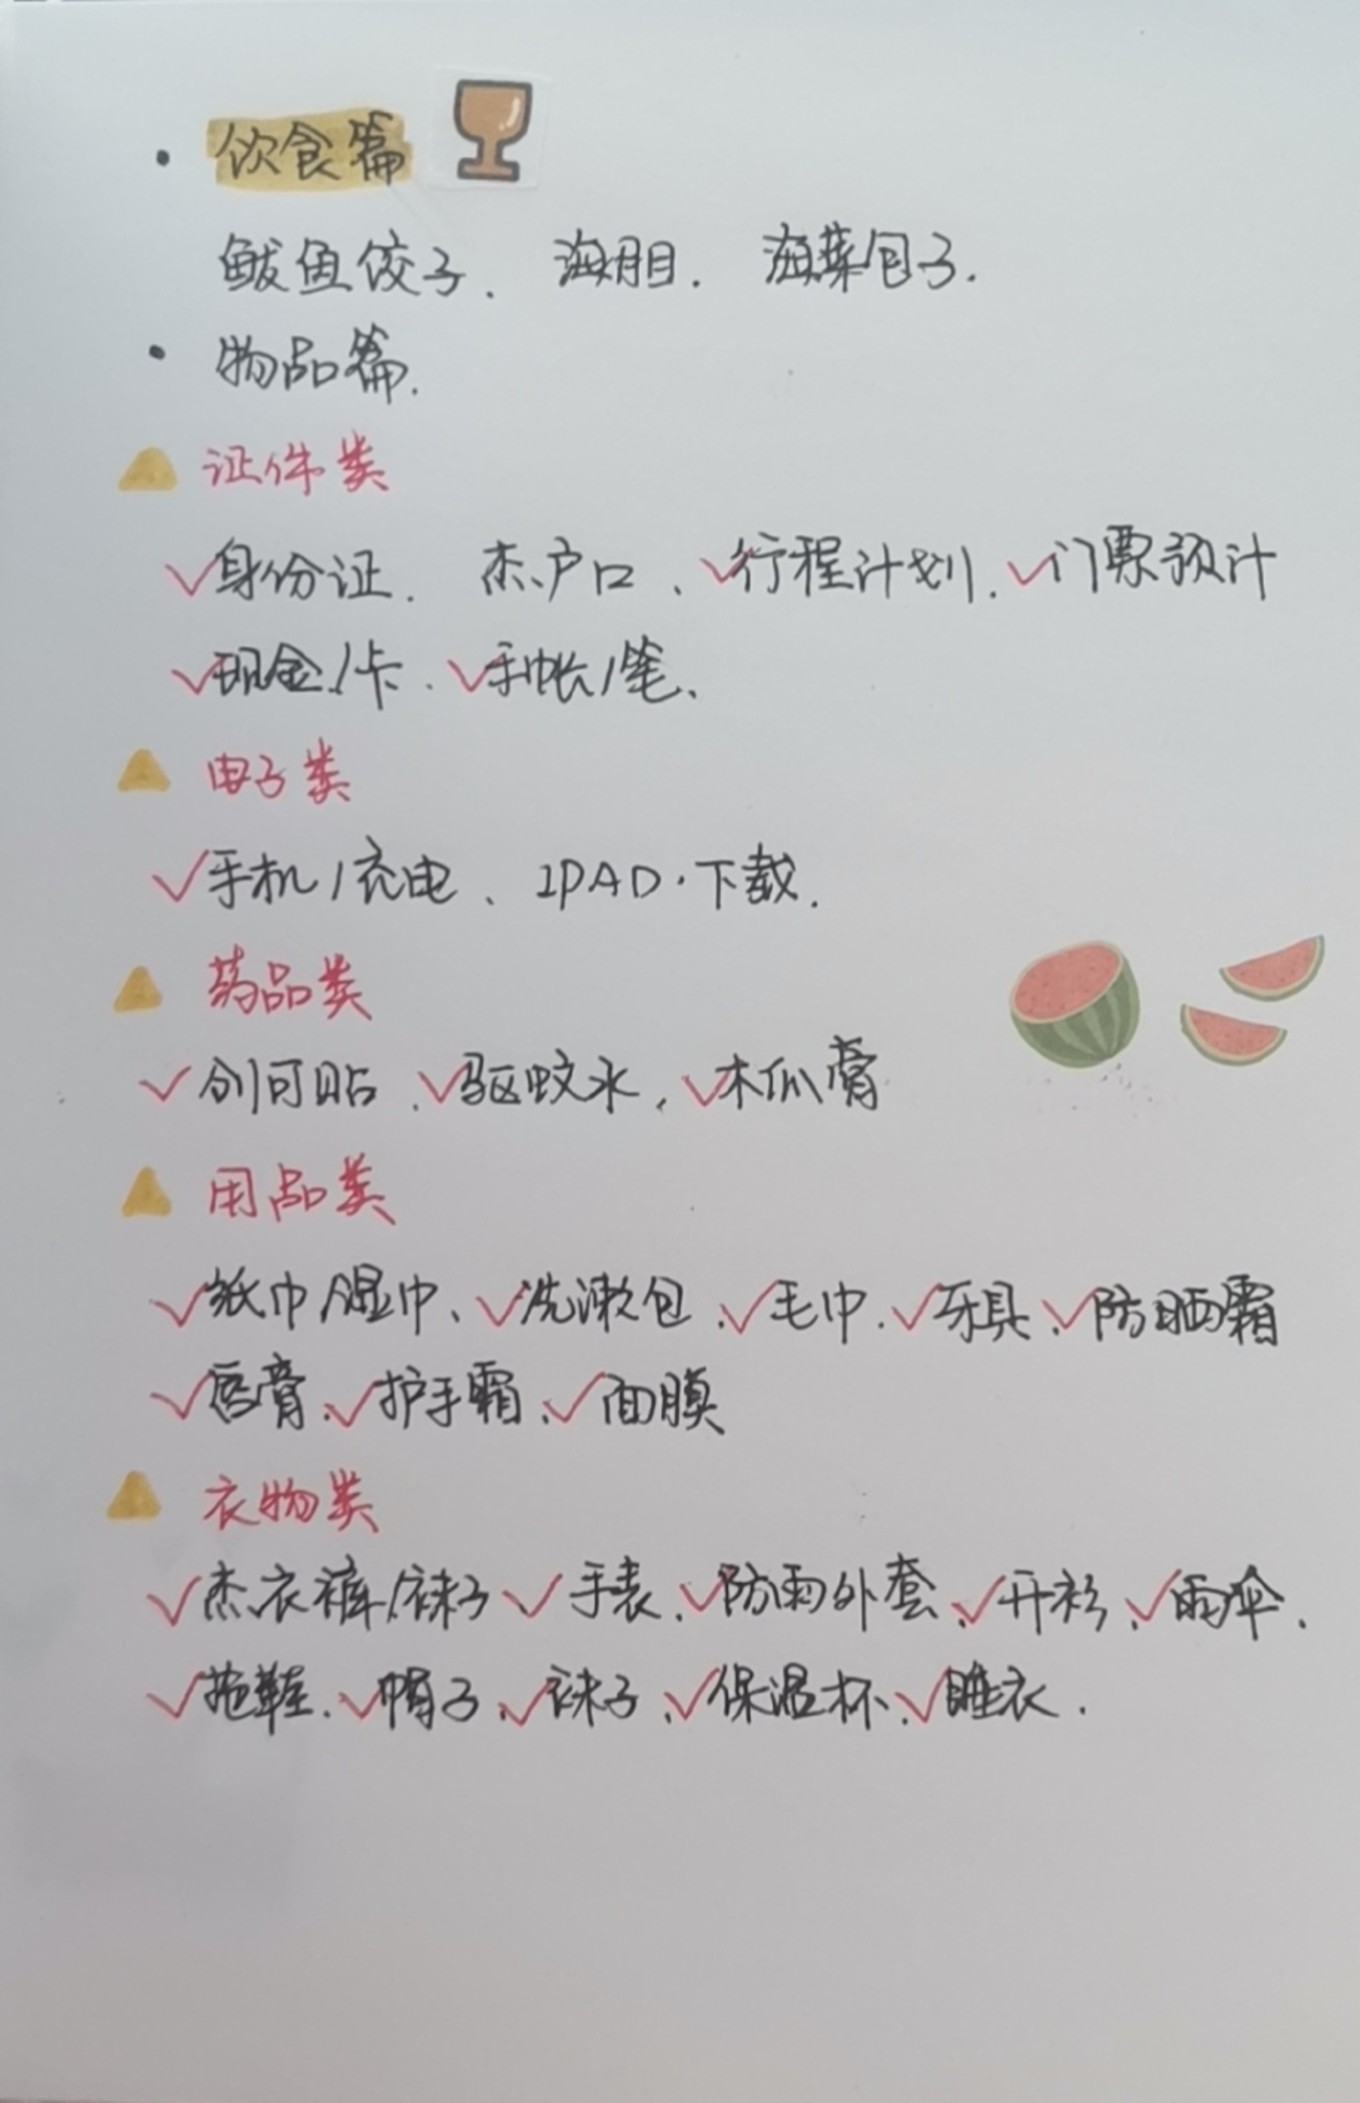 · 饮食篇
鲅鱼饺子、海胆、海菜包子.
· 物品篇.
证件类
✓身份证. 杰户口、✓行程计划.✓门票预计
✓现金/卡.✓手帐/笔、
电子类
✓手机/充电、IPAD·下载.
药品类
✓创可贴.✓驱蚊水、✓木瓜膏
用品类
✓纸巾/湿巾、✓洗漱包.✓毛巾.✓牙具、✓防晒霜
✓唇膏、✓护手霜、✓面膜
衣物类
✓杰衣裤/袜子✓手表、✓防雨外套、✓开衫、✓雨伞.
✓拖鞋.✓帽子、✓袜子、✓保温杯、✓睡衣.